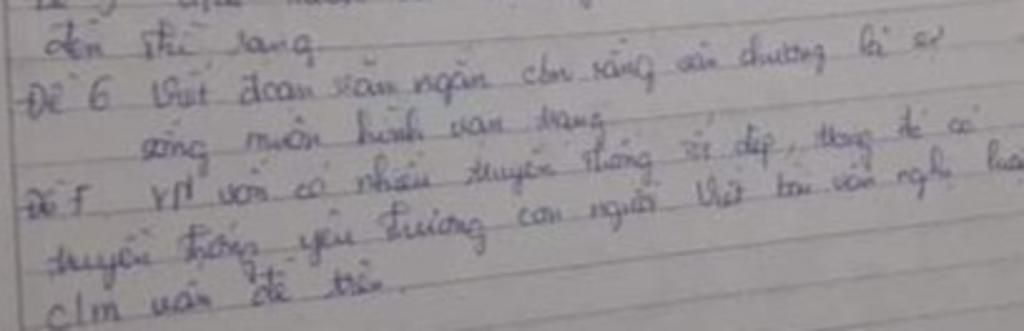 đèn thì rạng
Đề 6 Viết đoạn văn ngắn c/m rằng văn chương là sự
sống muôn hình vạn trạng
Đề 7 VN vốn có nhiều truyền thống tốt đẹp, trong đó có
truyền thống yêu thương con người Viết bài văn nghị luận
c/m vấn đề trên.